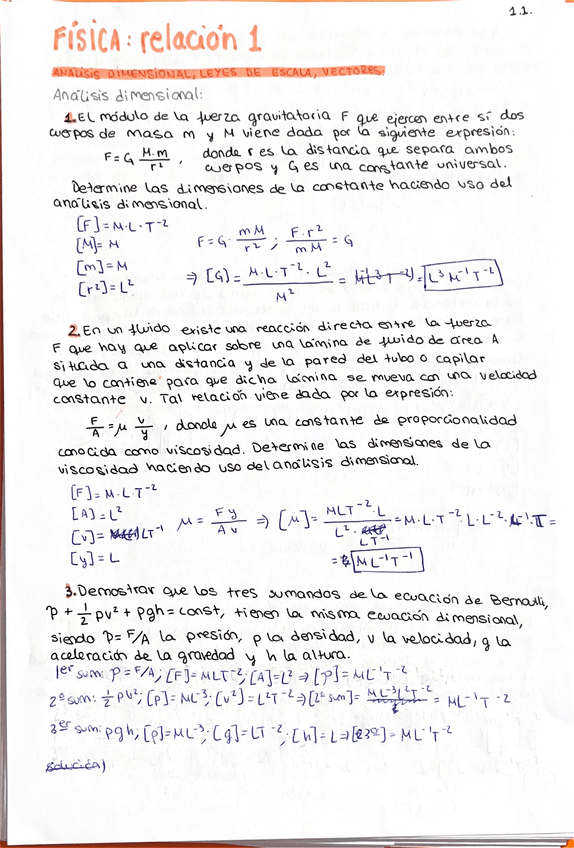 1.1.
FÍSICA: relación 1
ANÁLISIS DIMENSIONAL, LEYES DE ESCALA, VECTORES.
Análisis dimensional:
1. El módulo de la fuerza gravitatoria F que ejercen entre sí dos
cuerpos de masa m y M viene dada por la siguiente expresión:
F = G M·m / r² , donde r es la distancia que separa ambos
cuerpos y G es una constante universal.
Determine las dimensiones de la constante haciendo uso del
análisis dimensional.
[F] = M·L·T⁻²
[M] = M
F = G · mM / r² ; F·r² / mM = G
[m] = M
[r²] = L²
⇒ [G] = M·L·T⁻²·L² / M² = M⁻¹L³T⁻² = L³M⁻¹T⁻²
2. En un fluido existe una reacción directa entre la fuerza
F que hay que aplicar sobre una lámina de fluido de área A
situada a una distancia y de la pared del tubo o capilar
que lo contiene para que dicha lámina se mueva con una velocidad
constante v. Tal relación viene dada por la expresión:
F/A = μ v/y , donde μ es una constante de proporcionalidad
conocida como viscosidad. Determine las dimensiones de la
viscosidad haciendo uso del análisis dimensional.
[F] = M·L·T⁻²
[A] = L²
[v] = LT⁻¹ μ = Fy / Av ⇒ [μ] = MLT⁻²·L / L²·LT⁻¹ = M·L·T⁻²·L·L⁻²·L⁻¹·T =
[y] = L
= ML⁻¹T⁻¹
3. Demostrar que los tres sumandos de la ecuación de Bernoulli,
P + 1/2 ρv² + ρgh = const, tienen la misma ecuación dimensional,
siendo P = F/A la presión, ρ la densidad, v la velocidad, g la
aceleración de la gravedad y h la altura.
1er sum: P = F/A; [F] = MLT⁻²; [A] = L² ⇒ [P] = ML⁻¹T⁻²
2º sum: 1/2 ρv²; [ρ] = ML⁻³; [v²] = L²T⁻² ⇒ [2º sum] = ML⁻³L²T⁻² = ML⁻¹T⁻²
3er sum: ρgh; [ρ] = ML⁻³; [g] = LT⁻²; [h] = L ⇒ [3º] = ML⁻¹T⁻²